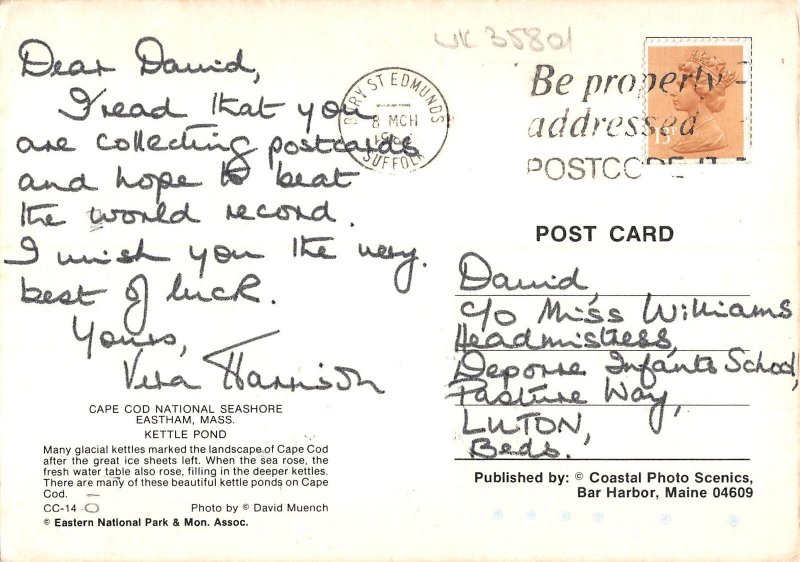 UK 35801
Dear David,
I read that you
are collecting postcards
and hope to beat
the world record.
I wish you the very
best of luck.
Yours,
Vera Harrison
BURY ST EDMUNDS
8 MCH
SUFFOLK
Be properly
addressed
POSTCODE IT
13
POST CARD
David,
c/o Miss Williams
Headmistress,
Infants School,
Pasture Way,
LUTON,
Beds.
CAPE COD NATIONAL SEASHORE
EASTHAM, MASS.
KETTLE POND
Many glacial kettles marked the landscape of Cape Cod
after the great ice sheets left. When the sea rose, the
fresh water table also rose, filling in the deeper kettles.
There are many of these beautiful kettle ponds on Cape
Cod.
CC-14 Photo by © David Muench
© Eastern National Park & Mon. Assoc.
Published by: © Coastal Photo Scenics,
Bar Harbor, Maine 04609